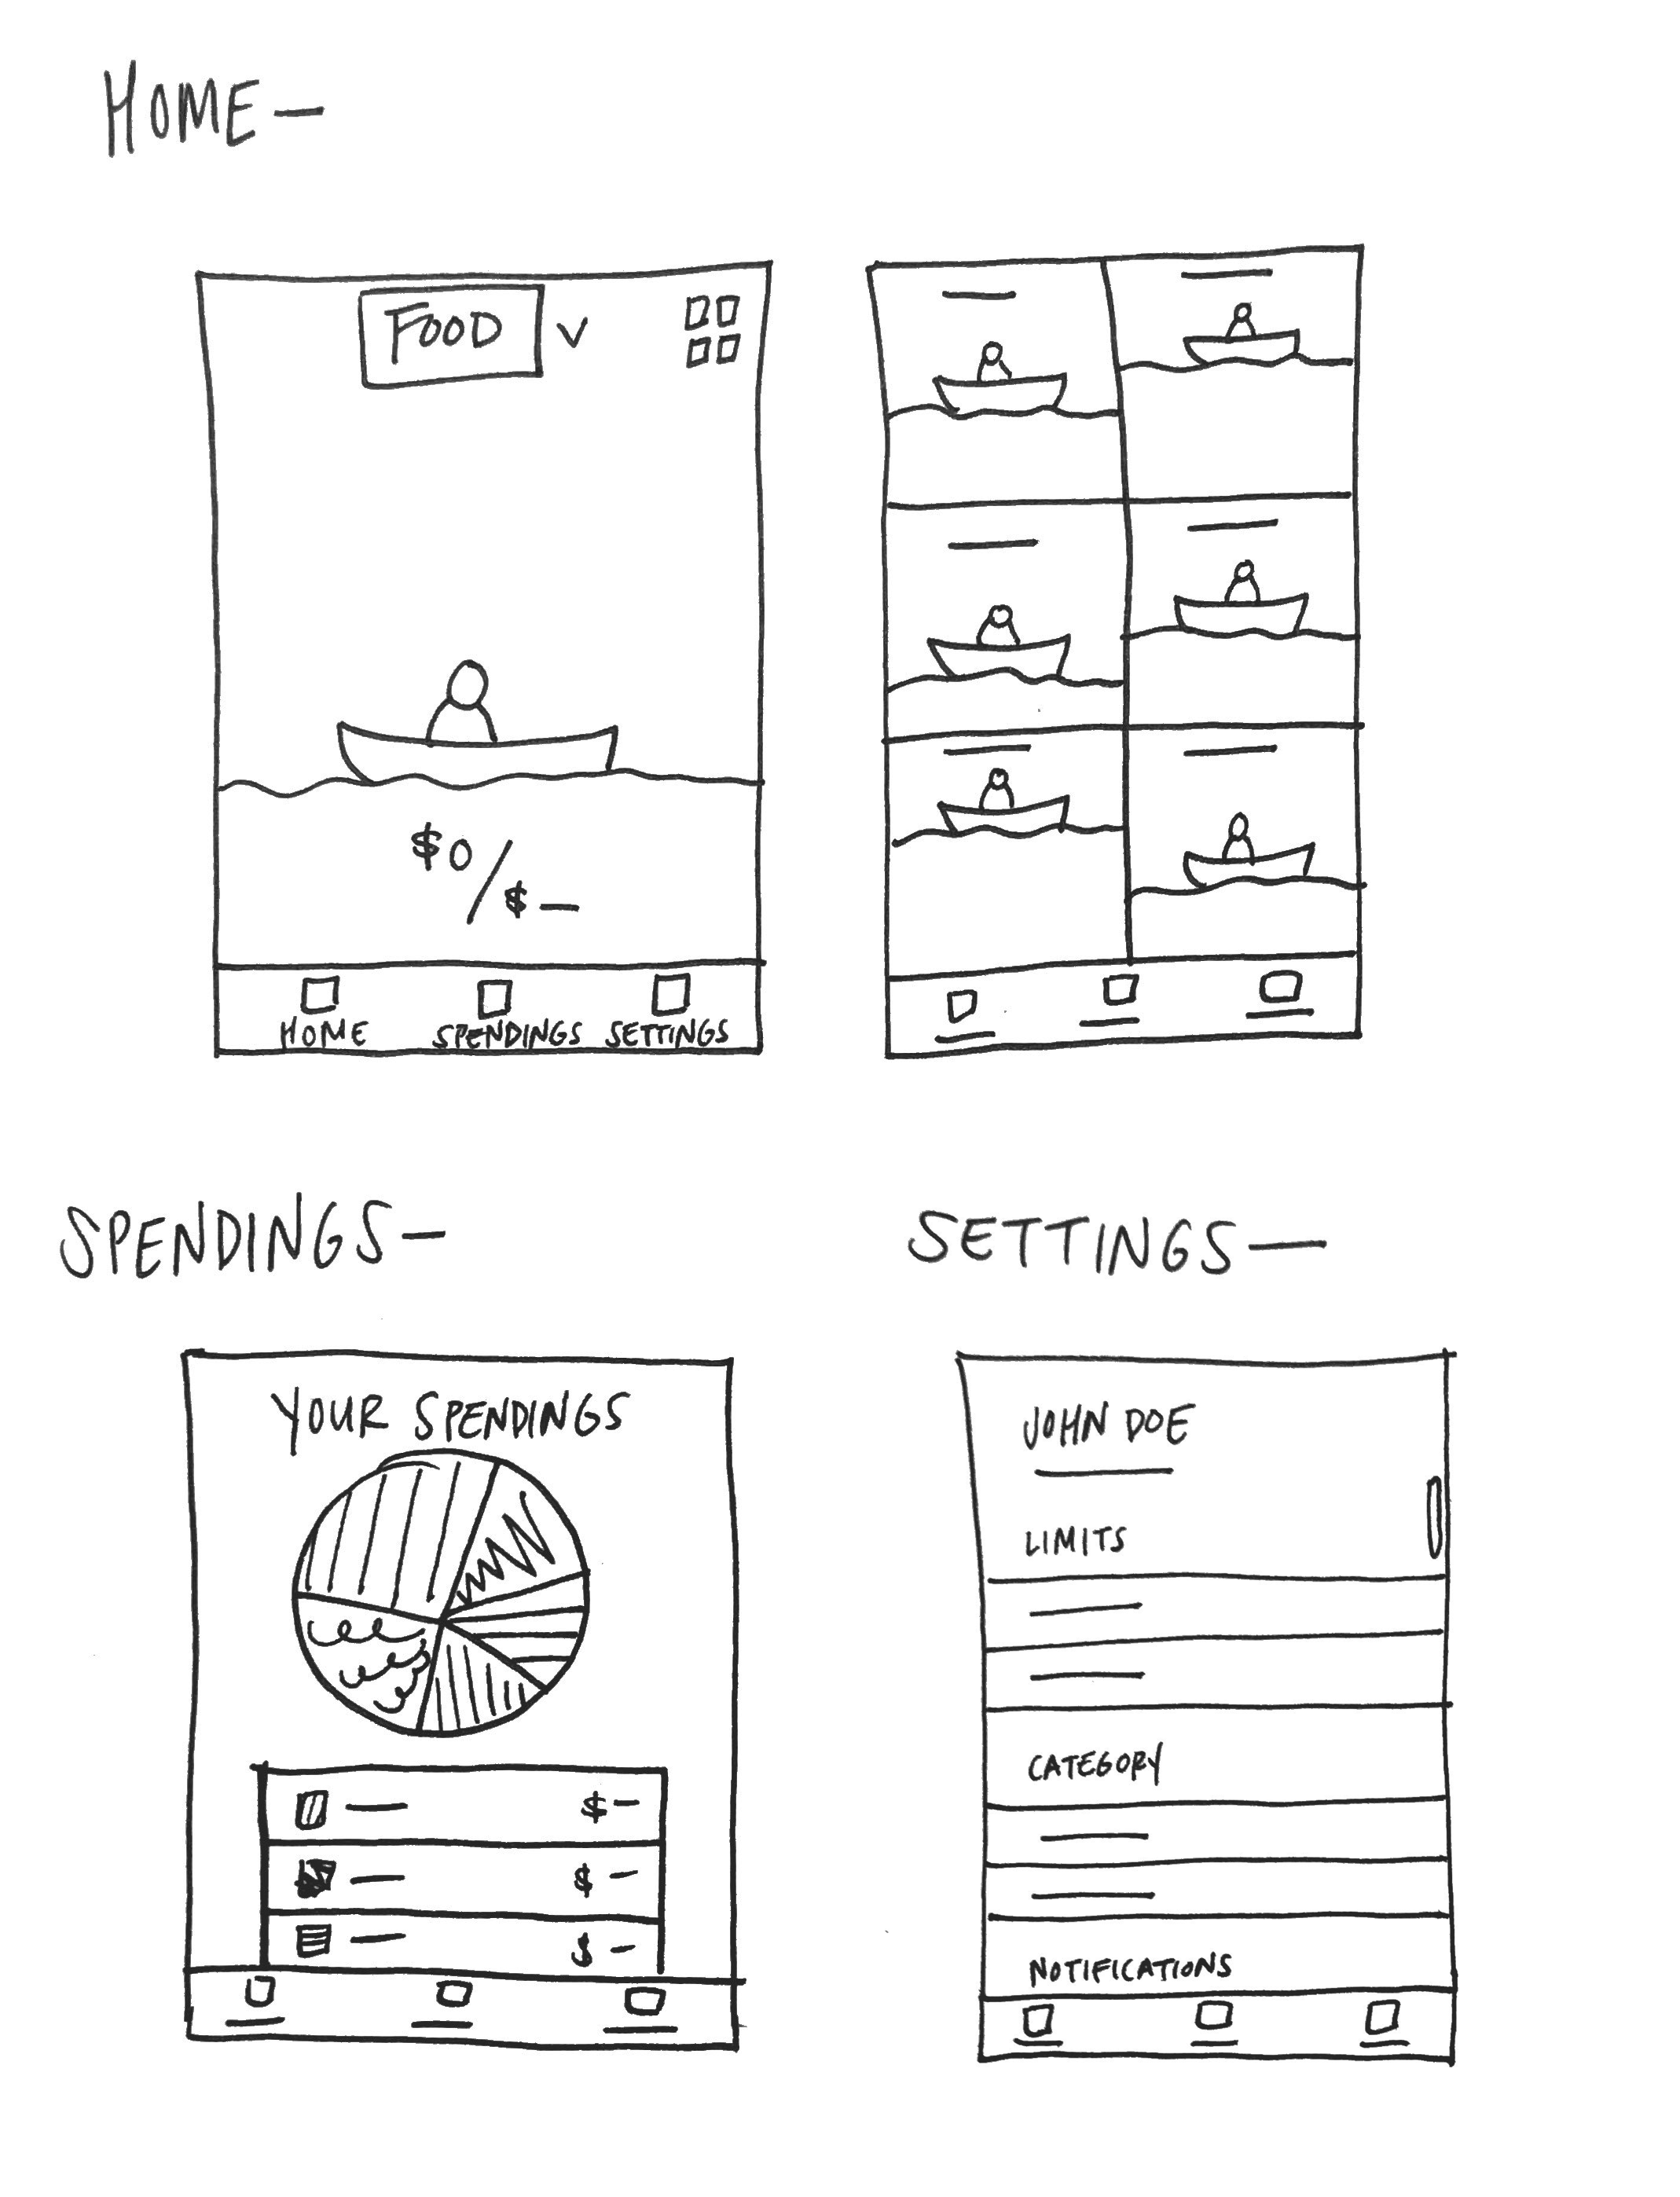 HOME —
FOOD V
$0/$ —
HOME SPENDINGS SETTINGS
SPENDINGS —
YOUR SPENDINGS
$ —
$ —
$ —
SETTINGS —
JOHN DOE
LIMITS
CATEGORY
NOTIFICATIONS